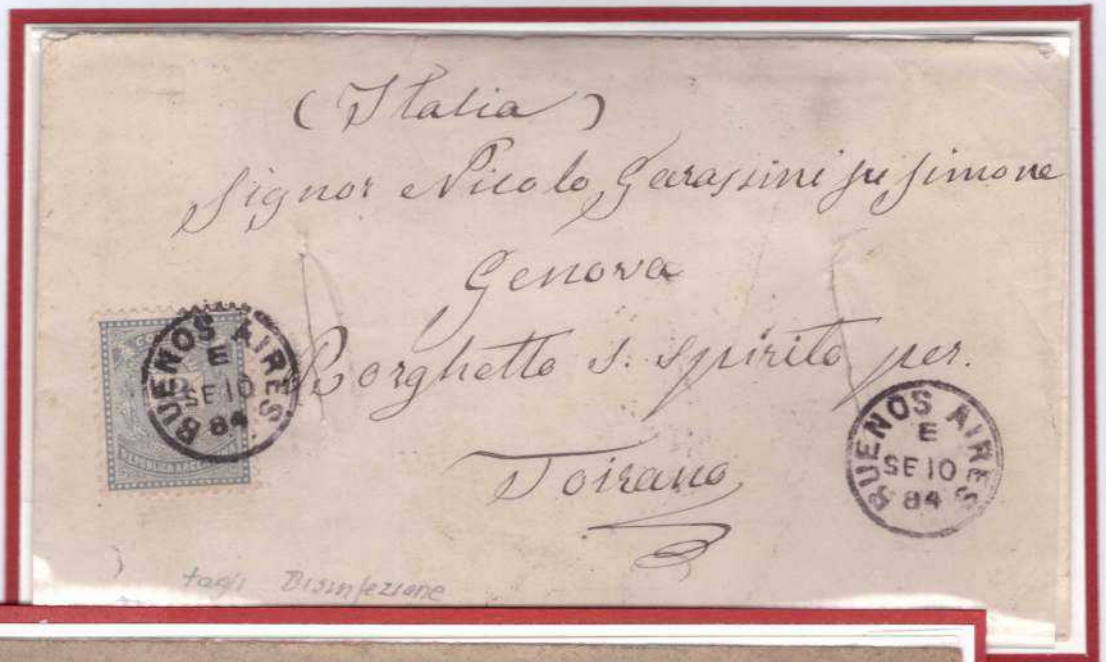 (Italia)
Signor Nicolo Garassini fu Simone
Genova
Borghetto S. Spirito per.
Toirano
BUENOS AIRES
E
SE 10
84
REPUBLICA
BUENOS AIRES
E
SE 10
84
tagli Disinfezione